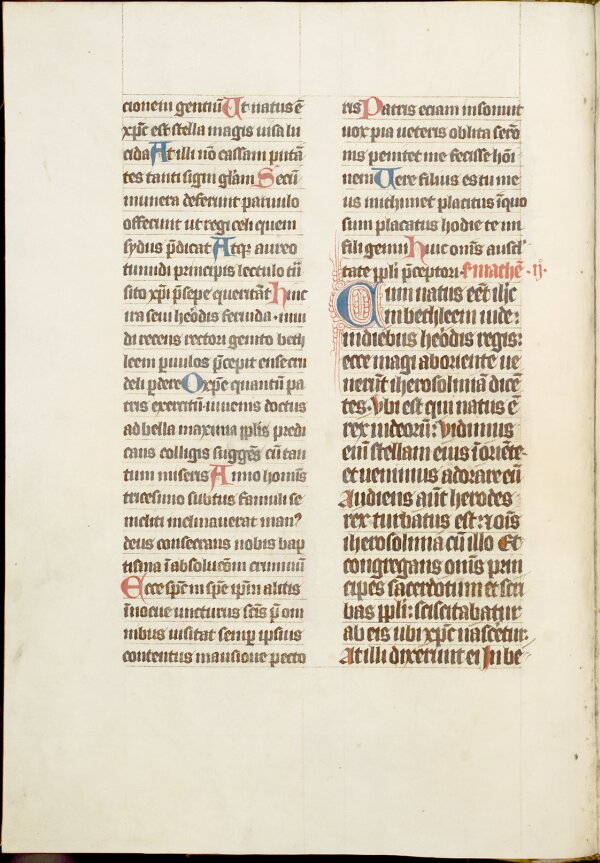 cionem gentiū Ut natus ē
xp̄c est stella magis uisa lu
cida At illi nō cassam putā
tes tanti signi glām Secū
munera deferunt paruulo
offerunt ut regi celi quem
sydus p̄dicat Atqʒ aureo
tumidi principis lectulo tn̄
sito xpi p̄sepe queritāt hinc
ira seui heōdis feruida ·
di recens rectori genito beth
leem puulos p̄cepit ense cru
deli pdere O xp̄e quantū pa
tris exercitū iuuenis doctus
ad bella maxima pplis predi
cans colligis suggēs cū tan
tum miseris Anno homīs
tricesimo subtus famuli se
incliti inclinauerat man⁹
deus consecrans nobis bap
tisma ī absolucōm criminū
Ecce sp̄c in spē ip̄m alitis
īnocue uncturus sc̄is p̄ om
nibus uisitat semp ipsius
contentus mansione pecto
ris Patris eciam insonuit
uox pia ueteris oblita sermō
nis penitet me fecisse hōi
nem Uere filius es tu me
us michimet placitus ī quo
sum placatus hodie te mi
fili genui huic om̄s auscl
tate ppli p̄ceptori · s̄ mathē · ij ·
Cum natus eēt ihc
in bethleem iude :
in diebus heōdis regis :
ecce magi ab oriente ue
nerūt iherosolimā dicē
tes · Vbi est qui natus ē
rex iudeorū : Vidimus
eiū stellam eius ī oriēte ·
et uenimus adorare eū
Audiens aūt herodes
rex turbatus est : ⁊ oīs
iherosolima cū illo Et
congregans om̄s prin
cipes sacerdotum et scri
bas ppli : sciscitabatur
ab eis ubi xp̄c nascētur :
At illi dixerunt ei In be